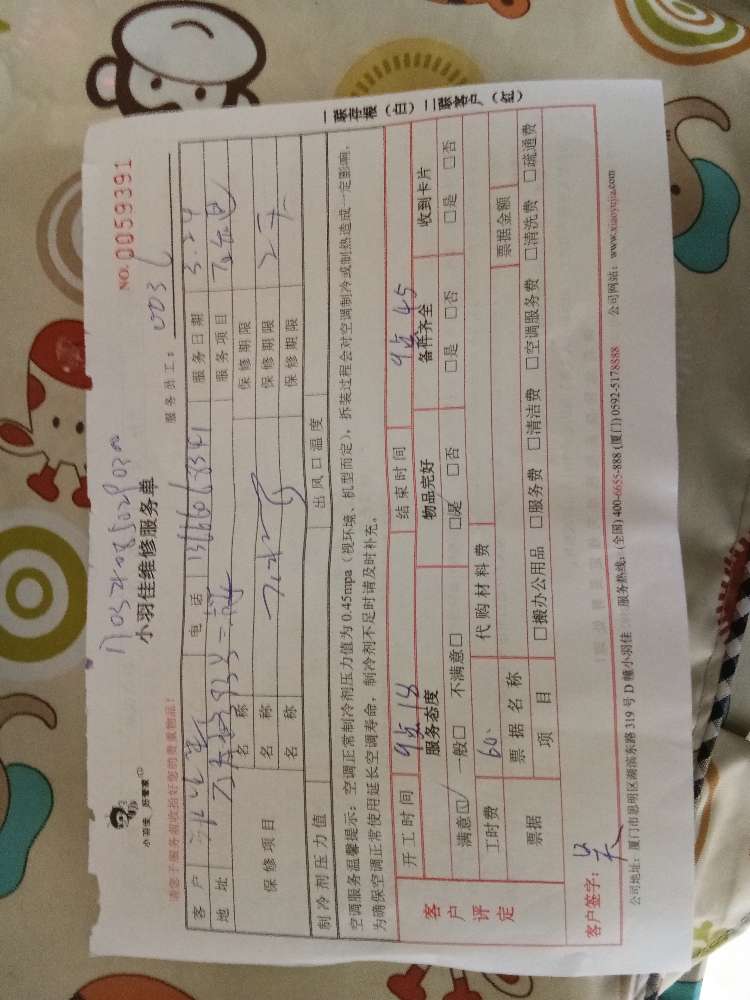 NO.0059391
小羽佳维修服务单
小羽佳 好管家
请您于服务前收拾好您的贵重物品!
服务员工: 003
客户 电话 服务日期 3.24
地址 服务项目
保修项目 名称 保修期限
名称 保修期限 2天
名称 保修期限
制冷剂压力值 出风口温度
空调服务温馨提示:空调正常制冷剂压力值为0.45mpa(视环境、机型而定),拆装过程会对空调制冷或制热造成一定影响,
为确保空调正常使用延长空调寿命,制冷剂不足时请及时补充。
客户评定 开工时间 9点18 结束时间 9点45
服务态度 物品完好 备件齐全 收到卡片
满意☑ 一般□ 不满意□ □是 □否 □是 □否 □是 □否
工时费 60. 代购材料费
票据 票据名称 票据金额
项目 □搬办公用品 □服务费 □清洁费 □空调服务费 □清洗费 □疏通费
客户签字: 吴
公司地址:厦门市思明区湖滨东路319号D幢小羽佳 服务热线:(全国)400-6655-888 (厦门)0592-5178888 公司网站:www.xiaoyujia.com
一联存根(白)二联客户(红)